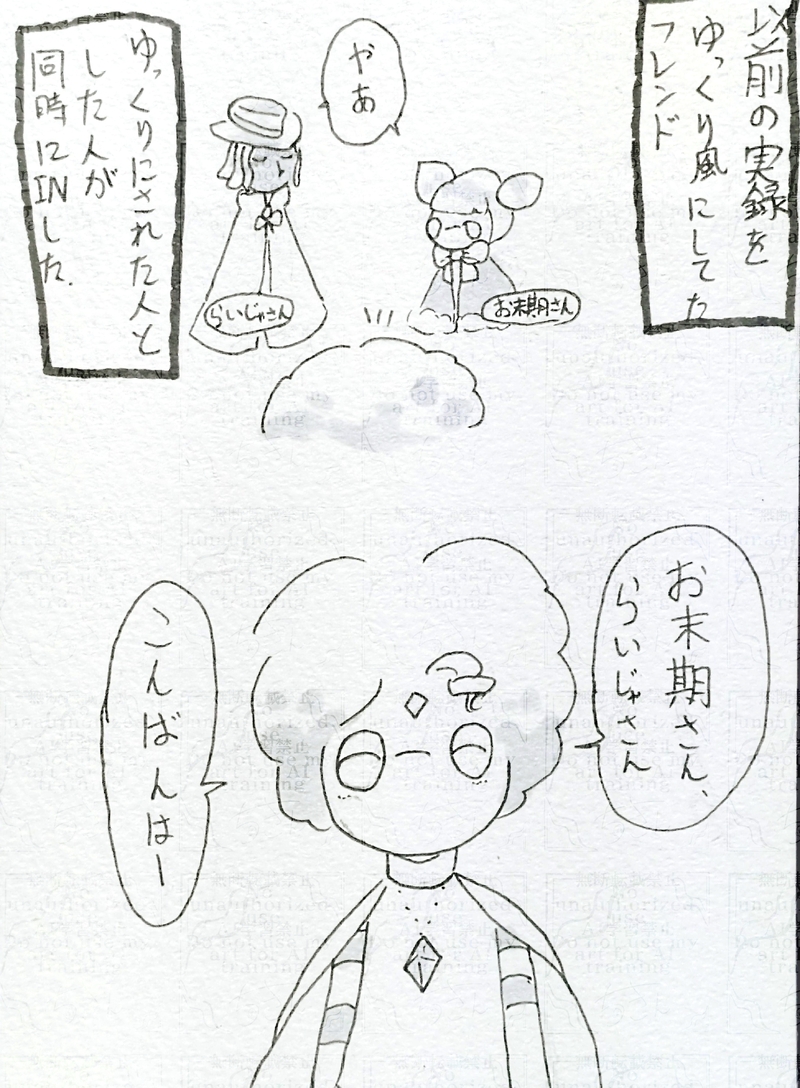 以前の実録を
ゆっくり風にしてた
フレンド
やあ
お末期さん
らいじゃさん
ゆっくりにされた人と
した人が
同時にINした.
お末期さん、
らいじゃさん
こんばんはー
無断転載禁止
unauthorized
use
AI学習禁止
Do not use my
art for AI
training